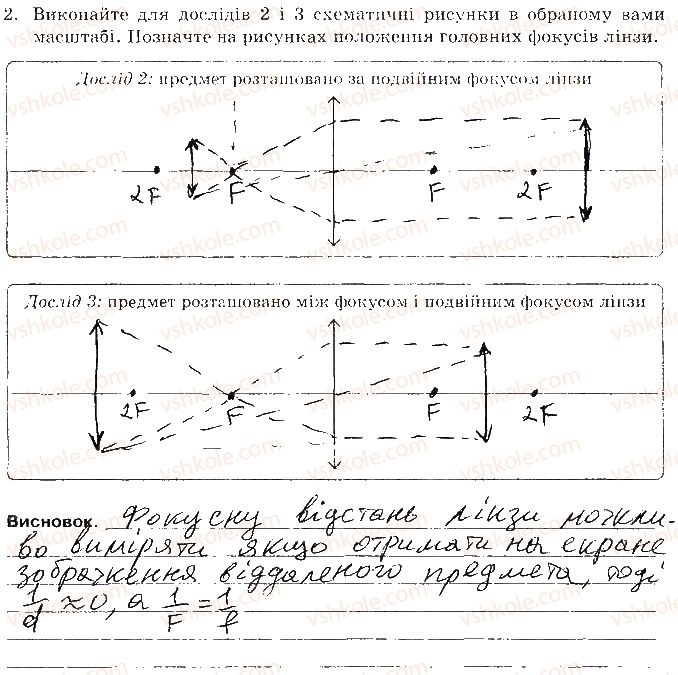 2. Виконайте для дослідів 2 і 3 схематичні рисунки в обраному вами
масштабі. Позначте на рисунках положення головних фокусів лінзи.
Дослід 2: предмет розташовано за подвійним фокусом лінзи
2F F F 2F
Дослід 3: предмет розташовано між фокусом і подвійним фокусом лінзи
2F F F 2F
Висновок. Фокусну відстань лінзи можли-
во виміряти якщо отримати на екране
зображення віддаленого предмета, тоді
1/d ≈ 0, а 1/F = 1/f
vshkole.com